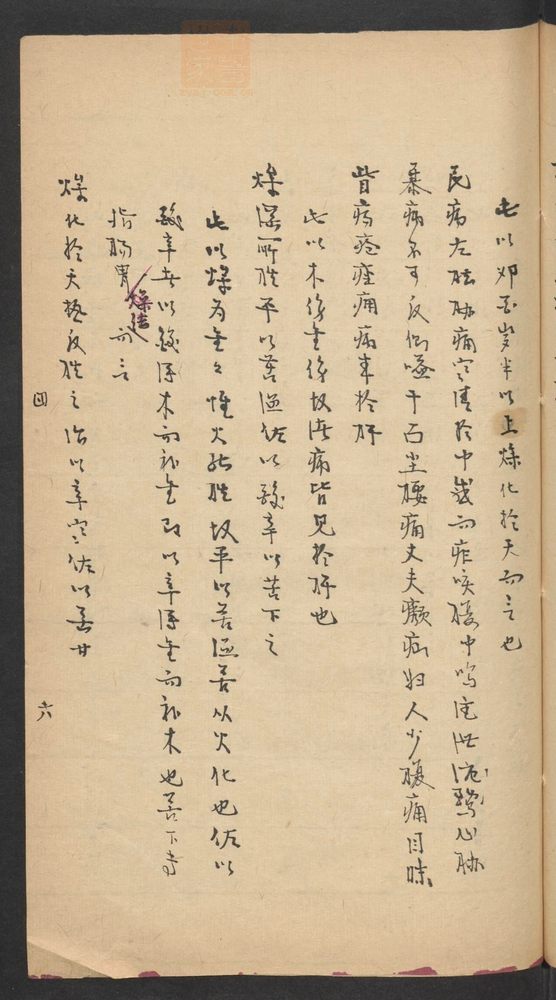 此以卯酉歲半以上燥化於天而言也
民病左胠胁痛寒清於中感而疟咳腹中鳴注泄鶩溏心胁
暴痛不可反側嗌干面尘腰痛丈夫癩疝妇人少腹痛目眛
眥瘍瘡痤痈病本於肝
此以木徬金徬故诸病皆見於肝也
燥淫所胜平以苦温佐以酸辛以苦下之
此以燥为金之惟火能胜故平以苦温苦从火化也佐以
酸辛者以酸泻木而补金或以辛泻金而补木也苦下者
指腸胃燥结而言
燥化於天热反胜之治以辛寒佐以苦甘
四
六